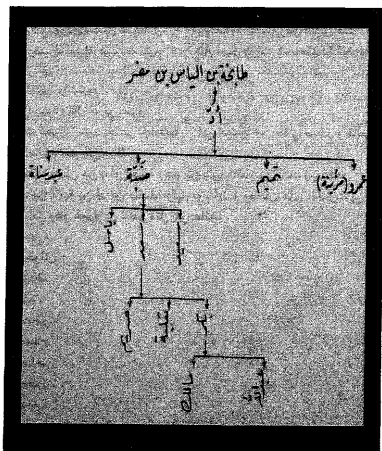 طابخة بن الياس بن مضر
أدّ
عمرو (مزينة) تميم ضبّة عبد مناة
سعيد سعد باسل
بكر ثعلبة صريم
عبد الله مالك